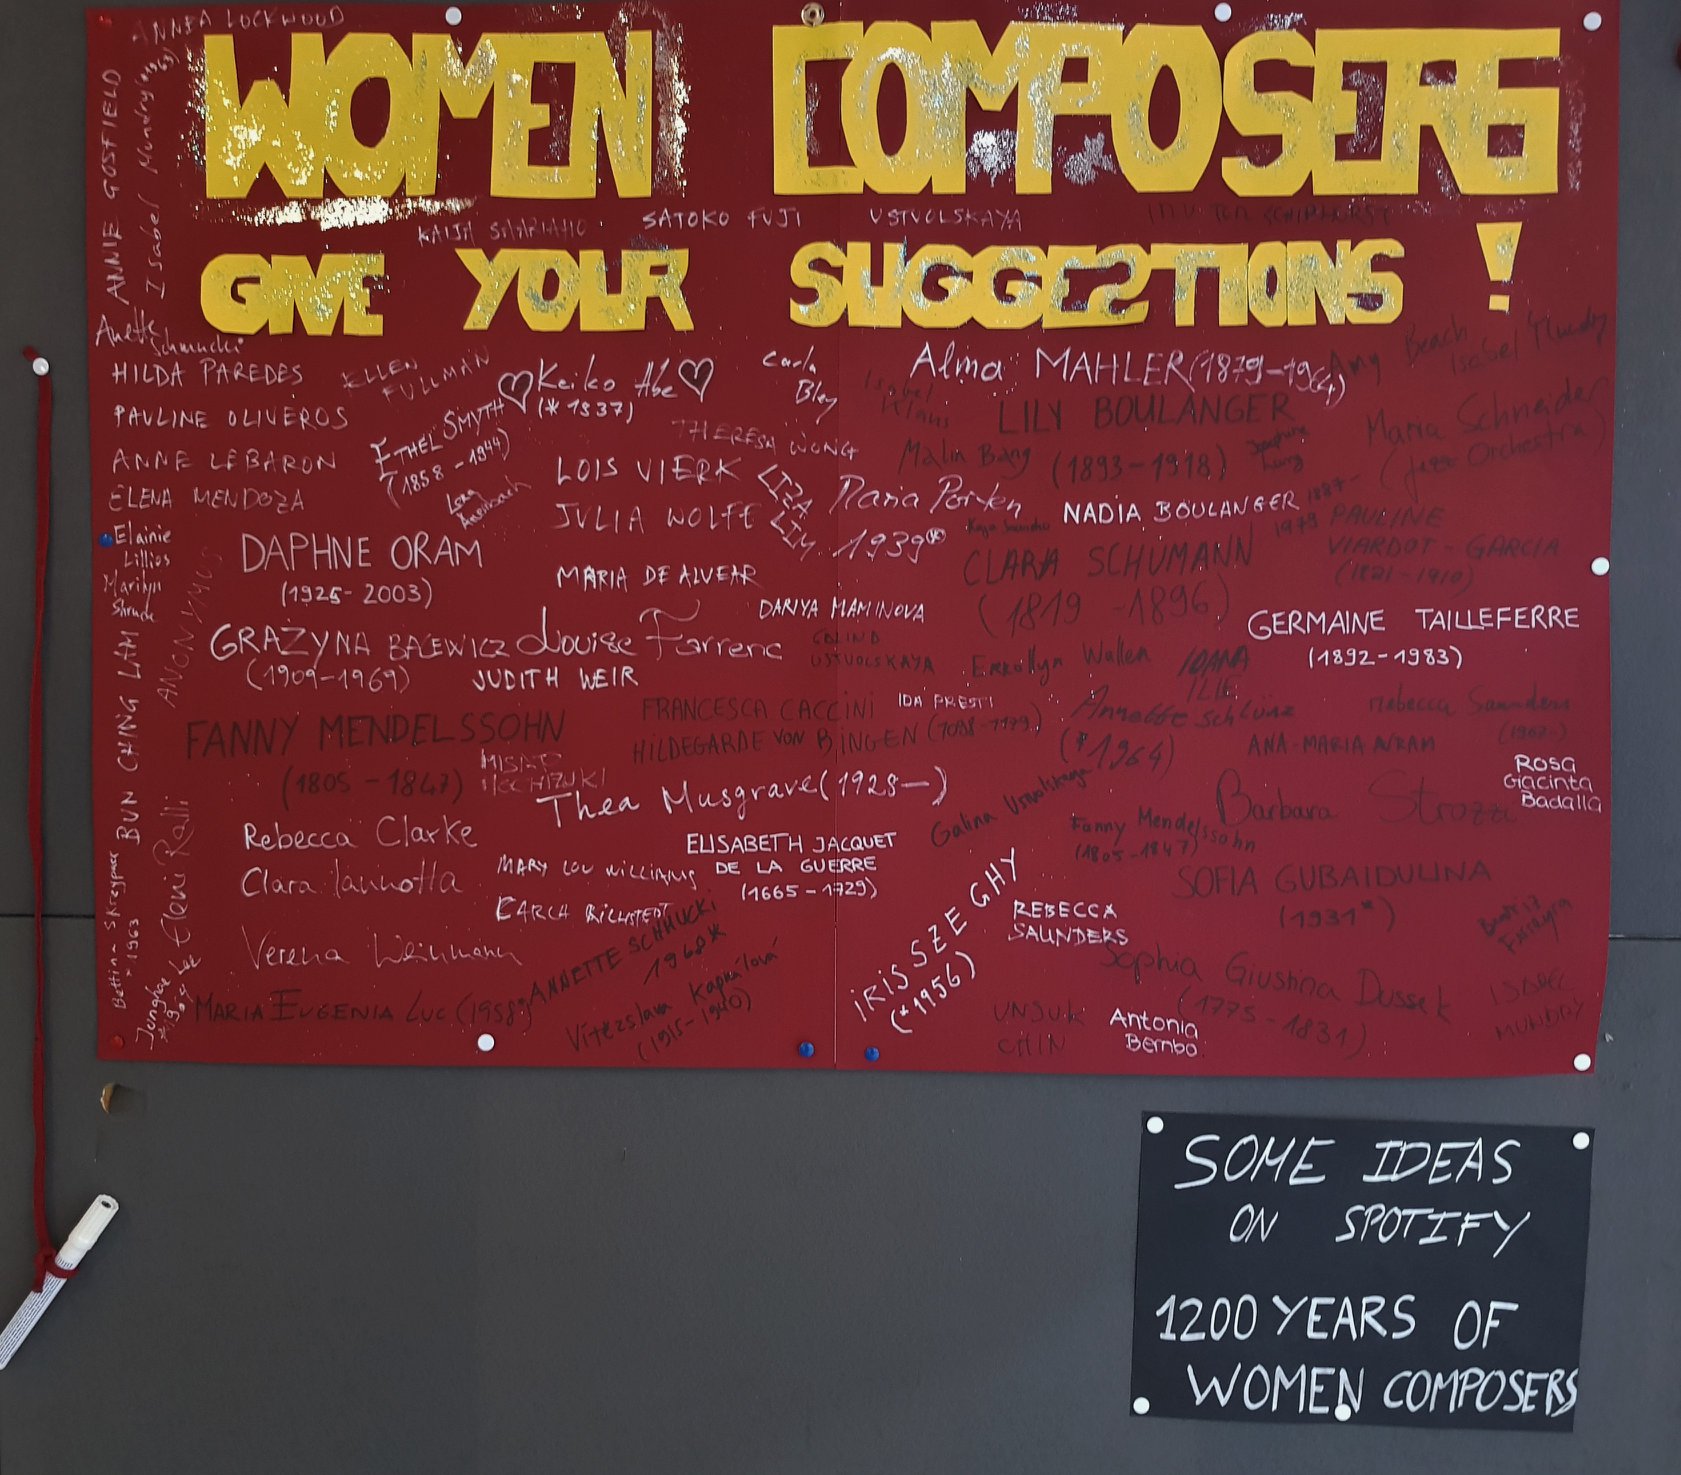 ANNEA LOCKWOOD
WOMEN COMPOSERS
ANNIE GOSFIELD
Isabel Mundry (*1963)
KAIJA SAARIAHO
SATOKO FUJI
USTVOLSKAYA
GIVE YOUR SUGGESTIONS!
Anette
Schmucki
HILDA PAREDES
PAULINE OLIVEROS
ANNE LEBARON
ELENA MENDOZA
Elainie
Lillios
Marilyn
Shrude
BUN CHING LAM
ANONYMOUS
Eleni Ralli
* 1963
ELLEN
FULLMAN
ETHEL SMYTH
(1858 - 1944)
Keiko Abe
(* 1937)
Carla
Bley
THERESA WONG
LOIS VIERK
JULIA WOLFE
LIZA
LIM
MARIA DE ALVEAR
DARIYA MAMINOVA
DAPHNE ORAM
(1925 - 2003)
GRAŻYNA BACEWICZ
(1909-1969)
Louise Farrenc
JUDITH WEIR
FANNY MENDELSSOHN
(1805 - 1847)
FRANCESCA CACCINI
IDA PRESTI
HILDEGARDE VON BINGEN
Thea Musgrave (1928 -)
Rebecca Clarke
Clara Iannotta
Verena Weinmann
MARY LOU WILLIAMS
ELISABETH JACQUET
DE LA GUERRE
(1665 - 1729)
ANNETTE SCHMUCKI
1968*
MARIA EUGENIA LUC (1958*)
Vítezslava Kaprálová
(1915-1940)
Alma MAHLER (1879-1964)
Amy Beach
Isabel Mundry
Isabel
Klaus
LILY BOULANGER
(1893-1918)
Malin Bång
Maria Schneider
(Jazz Orchestra)
Maria Porten
1939*
NADIA BOULANGER 1887-
1979
PAULINE
VIARDOT - GARCIA
(1821-1910)
CLARA SCHUMANN
(1819 - 1896)
GERMAINE TAILLEFERRE
(1892-1983)
USTVOLSKAYA
Errollyn Wallen
IOANA
ILIE
Annette Schlünz
(*1964)
Rebecca Saunders
(1967-)
ANA-MARIA AVRAM
ROSA
Giacinta
Badalla
Barbara Strozzi
Galina Ustvolskaya
Fanny Mendelssohn
(1805-1847)
SOFIA GUBAIDULINA
(1931*)
IRIS SZEGHY
(*1956)
REBECCA
SAUNDERS
Sophia Giustina Dussek
(1775 - 1831)
UNSUK
CHIN
Antonia
Bembo
ISABEL
MUNDRY
SOME IDEAS
ON SPOTIFY
1200 YEARS OF
WOMEN COMPOSERS